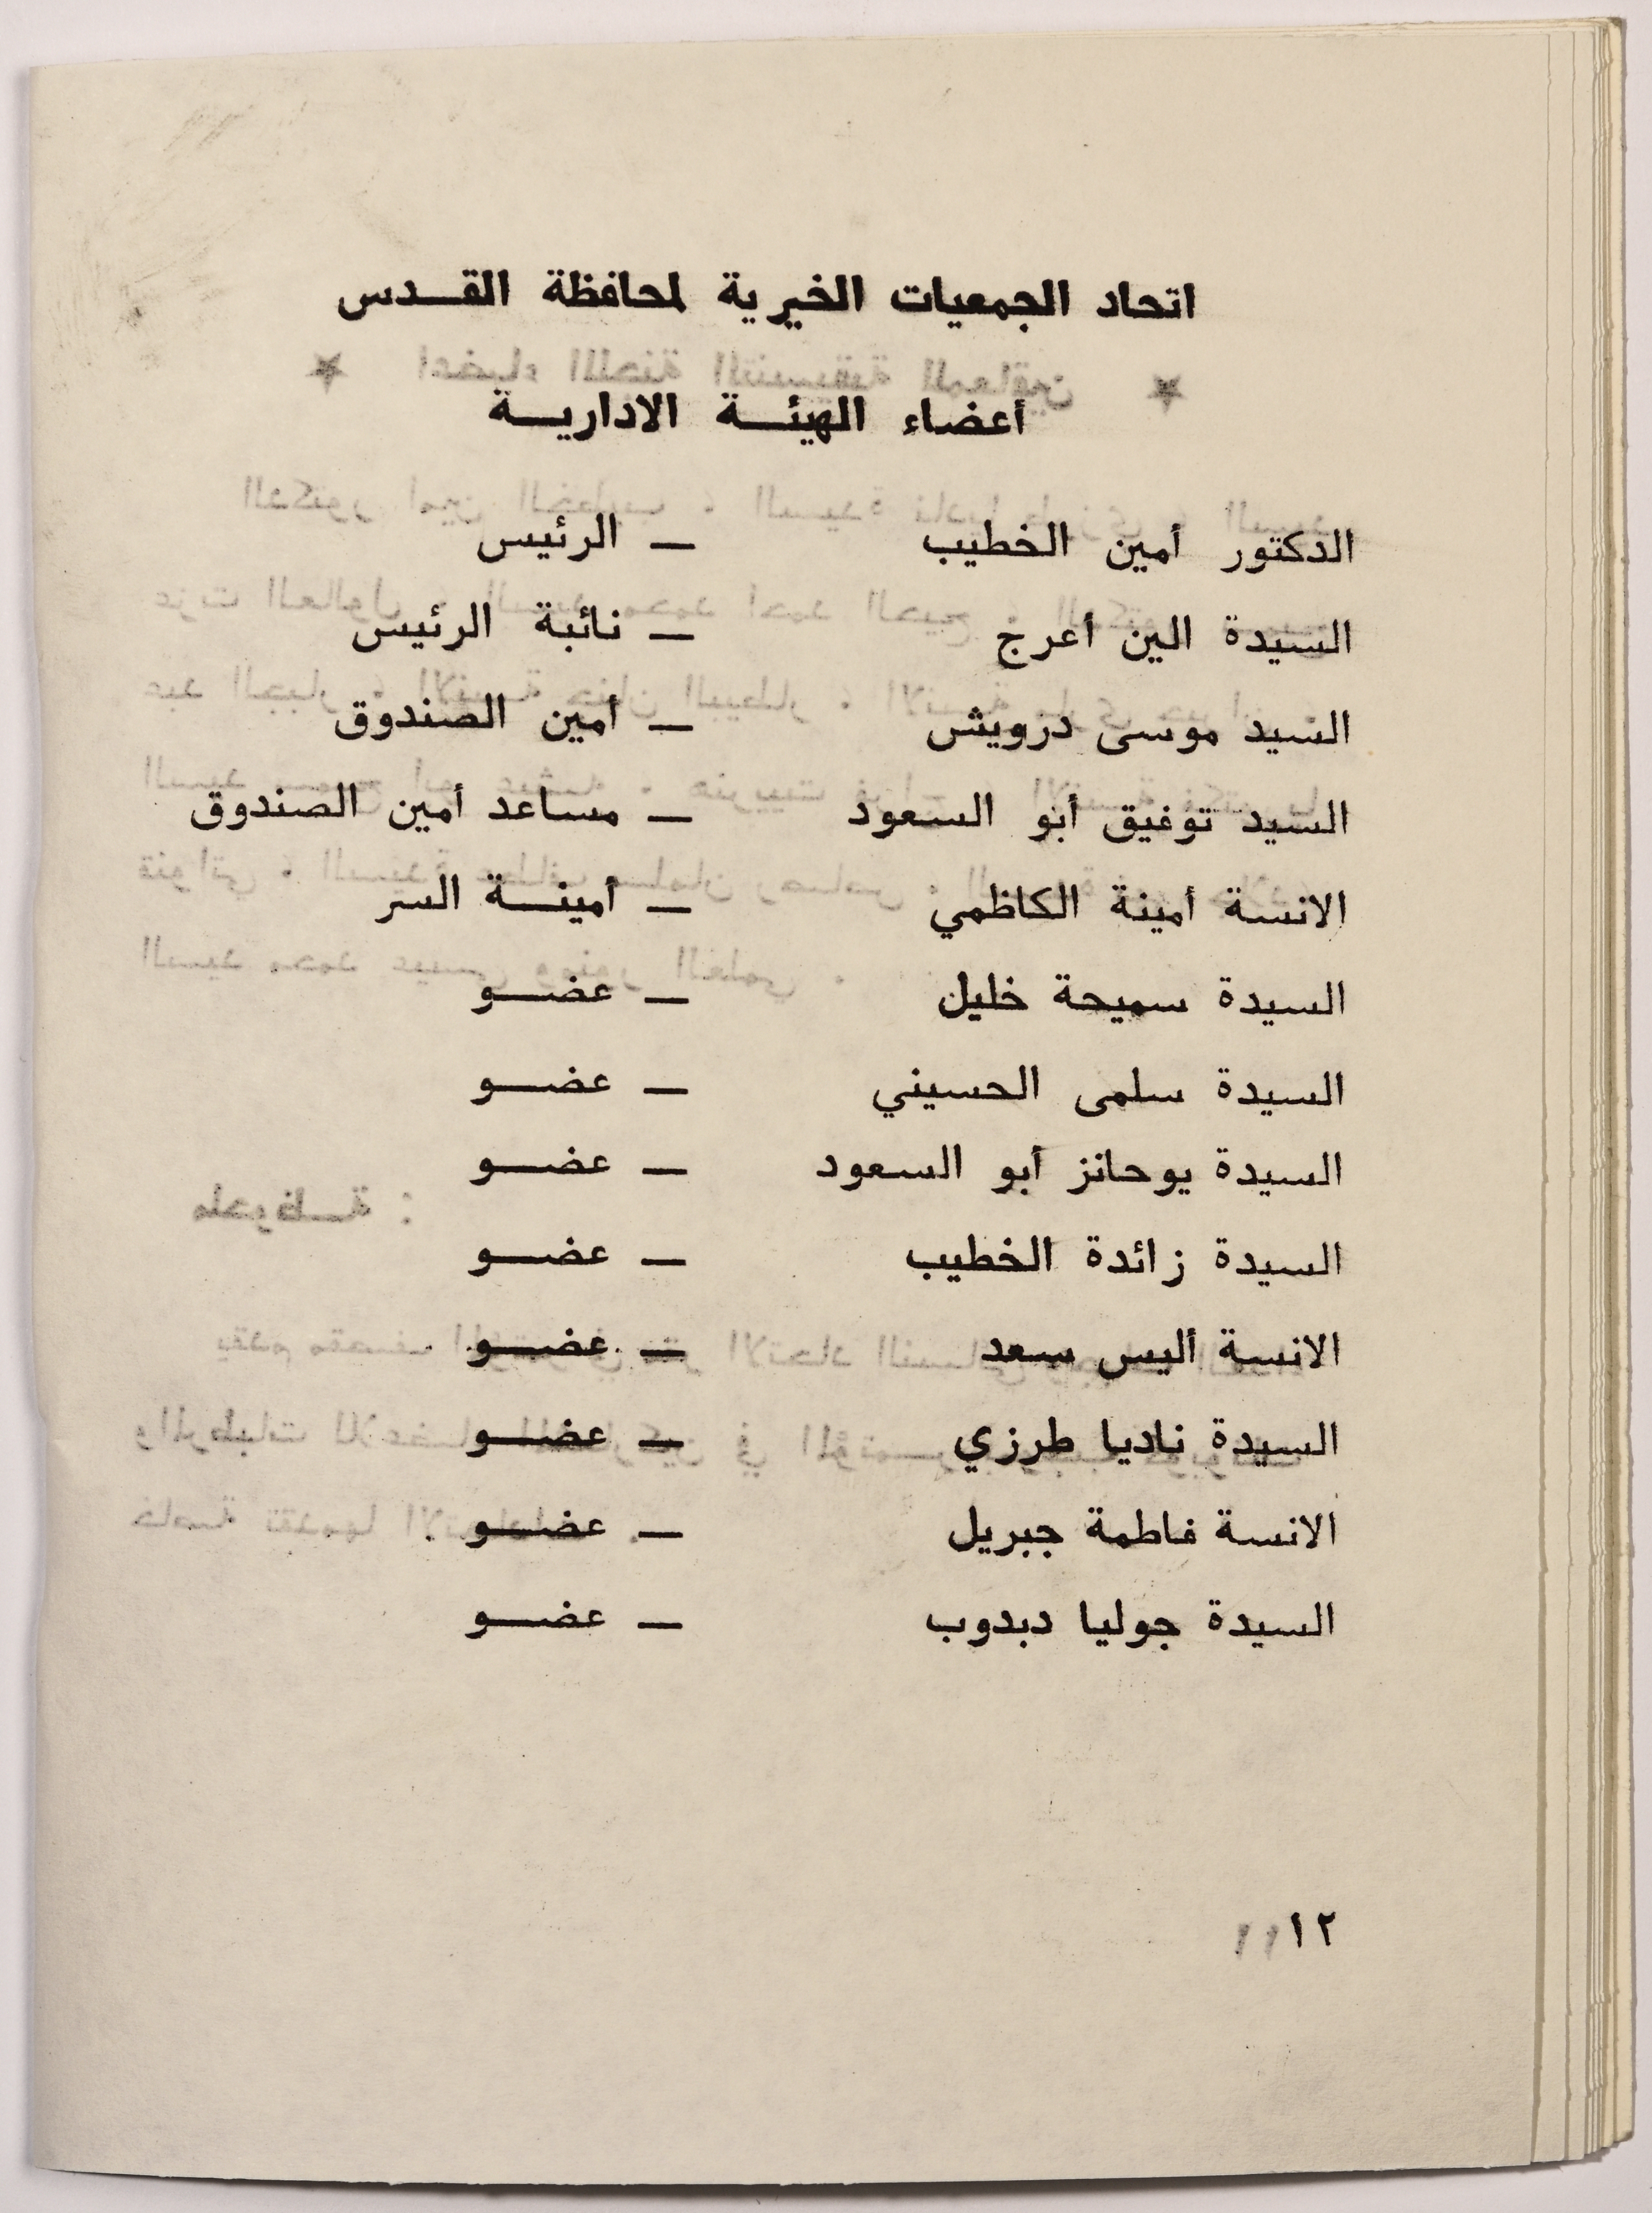 اتحاد الجمعيات الخيرية لمحافظة القـــدس
أعضاء الهيئـــة الاداريـــة
الدكتور أمين الخطيب — الرئيس
السيدة الين أعرج — نائبة الرئيس
السيد موسى درويش — أمين الصندوق
السيد توفيق أبو السعود — مساعد أمين الصندوق
الانسة أمينة الكاظمي — أمينـــة السر
السيدة سميحة خليل — عضـــو
السيدة سلمى الحسيني — عضـــو
السيدة يوحانز أبو السعود — عضـــو
السيدة زائدة الخطيب — عضـــو
الانسة أليس سعد — عضـــو
السيدة ناديا طرزي — عضـــو
الانسة فاطمة جبريل — عضـــو
السيدة جوليا دبدوب — عضـــو
١٢